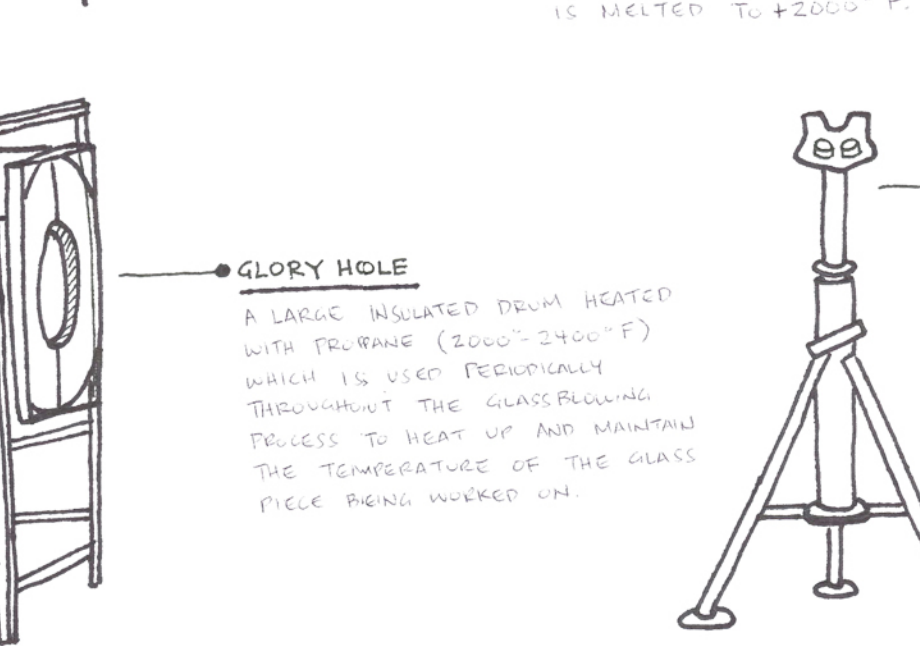 IS MELTED TO +2000° F.
GLORY HOLE
A LARGE INSULATED DRUM HEATED
WITH PROPANE (2000°-2400°F)
WHICH IS USED PERIODICALLY
THROUGHOUT THE GLASSBLOWING
PROCESS TO HEAT UP AND MAINTAIN
THE TEMPERATURE OF THE GLASS
PIECE BEING WORKED ON.